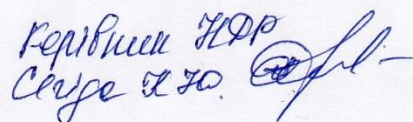 Керівник НДР
Сегіда К Ю.